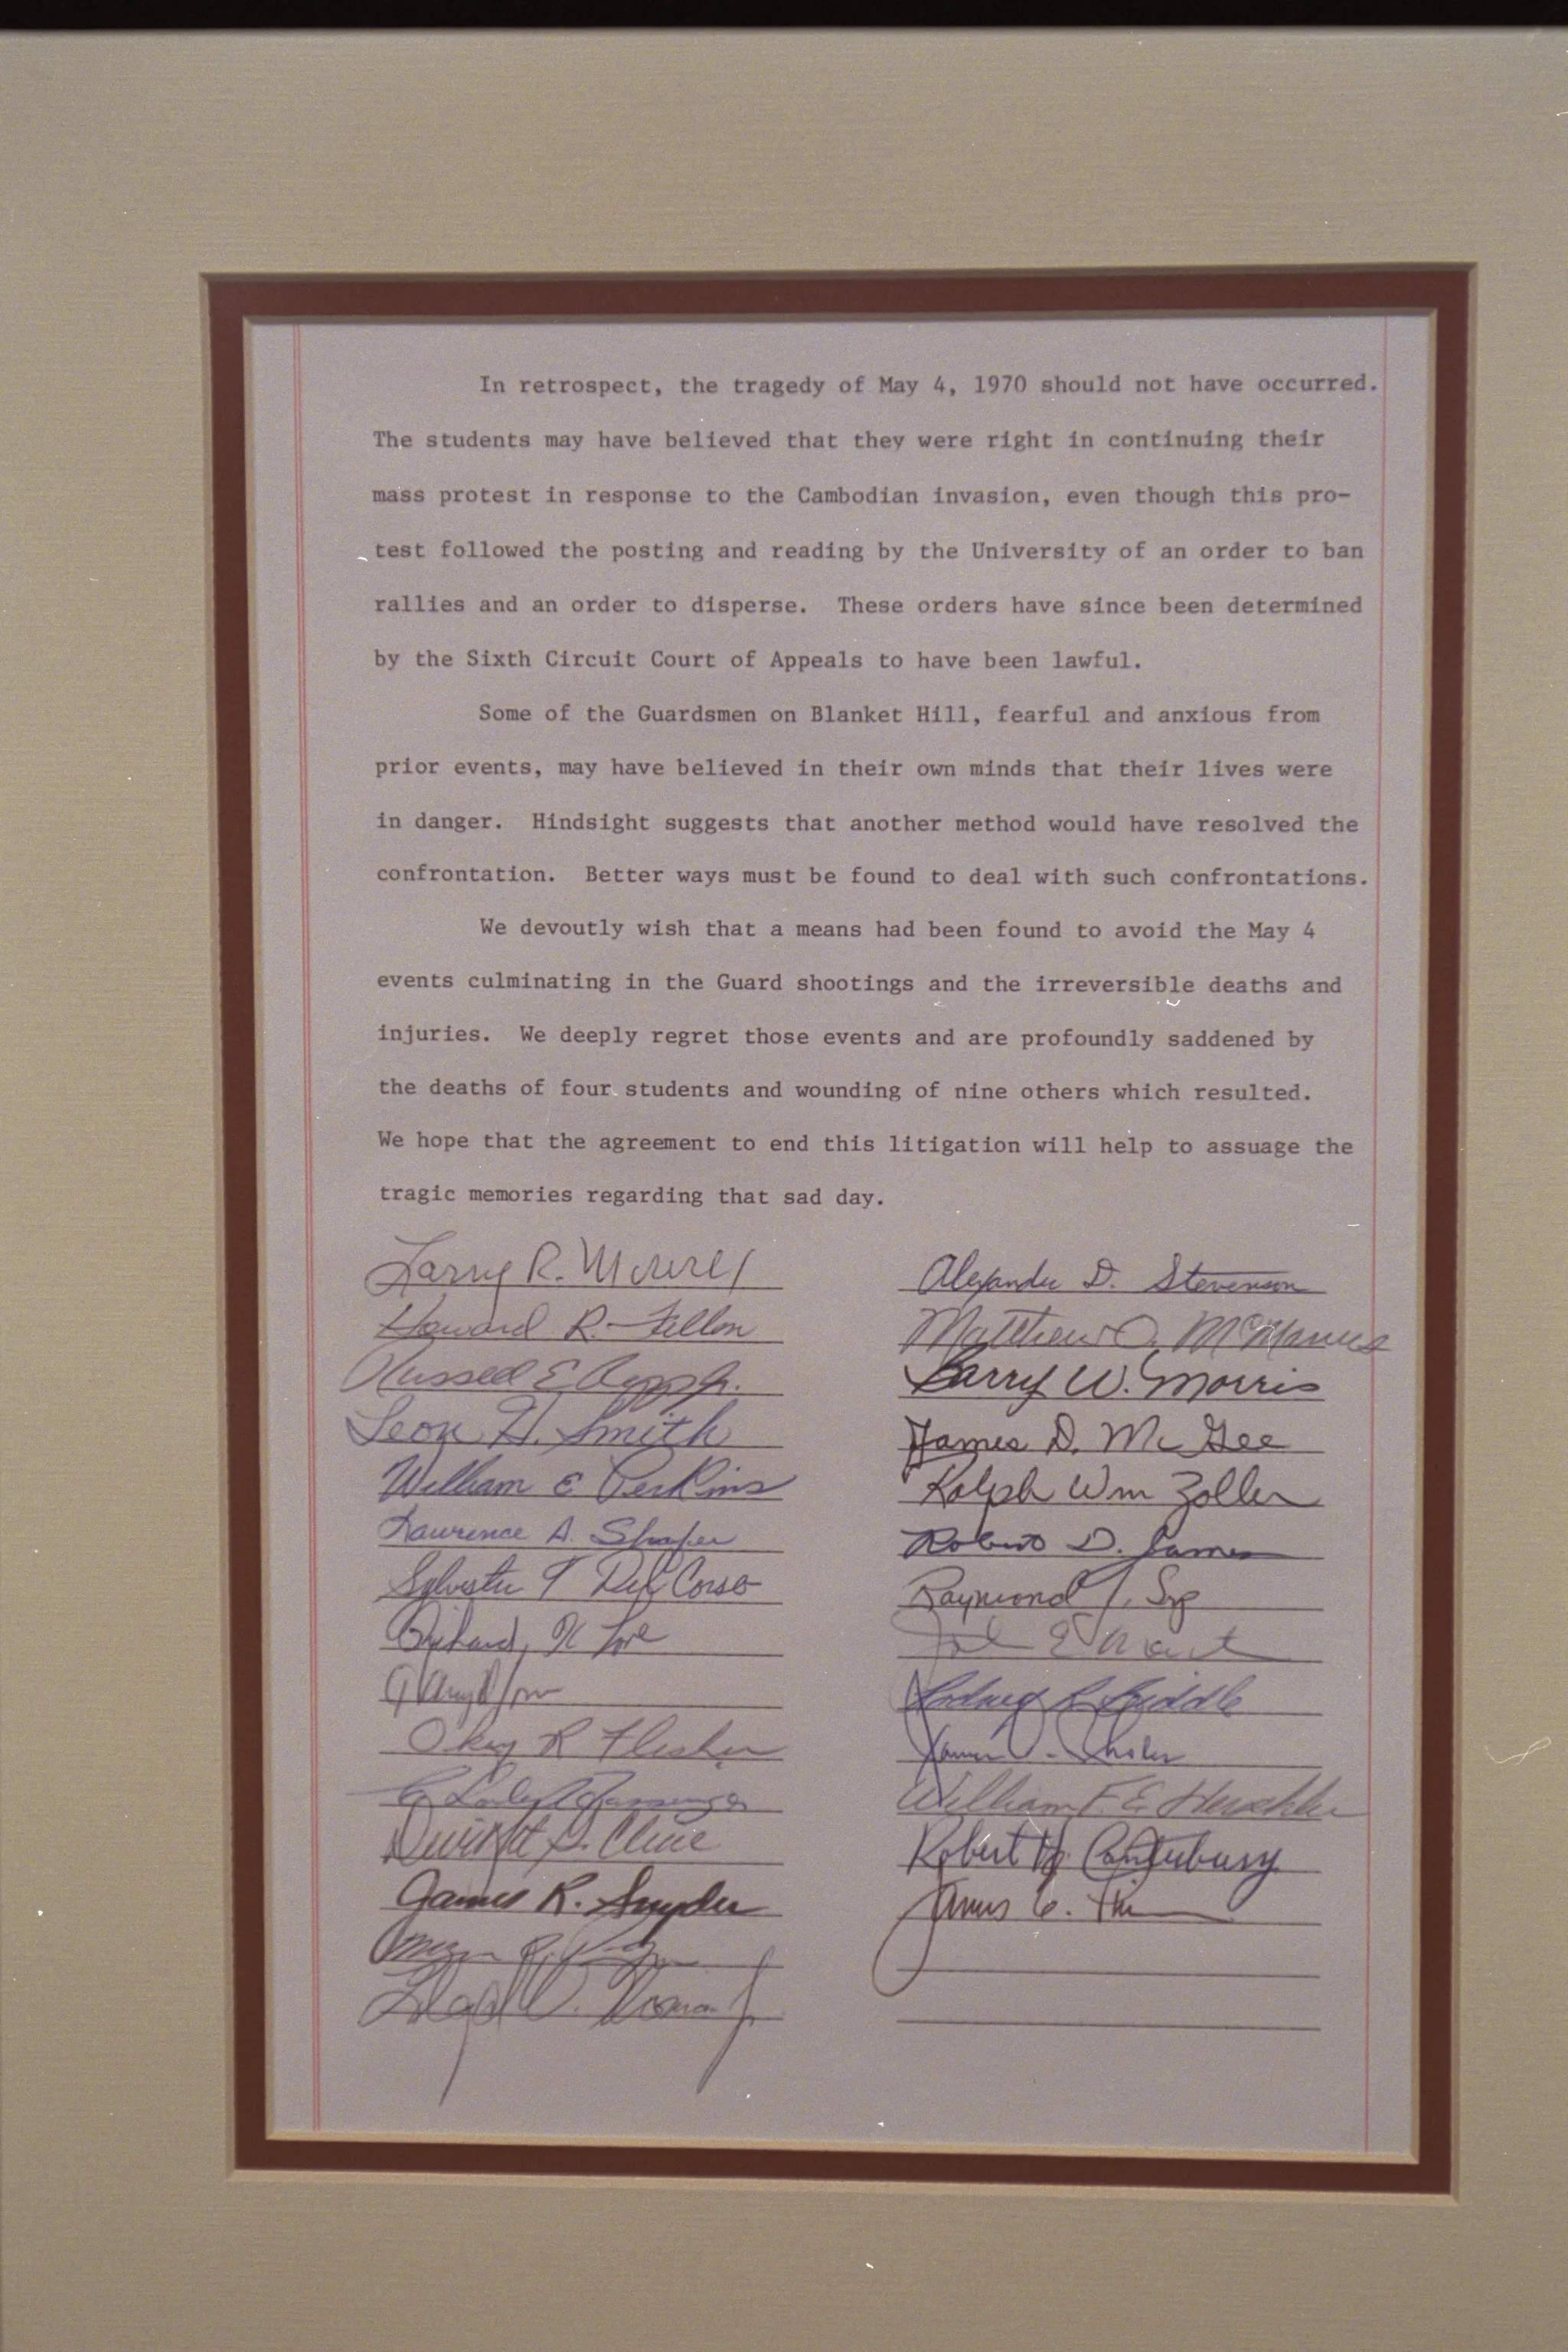 In retrospect, the tragedy of May 4, 1970 should not have occurred.
The students may have believed that they were right in continuing their
mass protest in response to the Cambodian invasion, even though this pro-
test followed the posting and reading by the University of an order to ban
rallies and an order to disperse. These orders have since been determined
by the Sixth Circuit Court of Appeals to have been lawful.
Some of the Guardsmen on Blanket Hill, fearful and anxious from
prior events, may have believed in their own minds that their lives were
in danger. Hindsight suggests that another method would have resolved the
confrontation. Better ways must be found to deal with such confrontations.
We devoutly wish that a means had been found to avoid the May 4
events culminating in the Guard shootings and the irreversible deaths and
injuries. We deeply regret those events and are profoundly saddened by
the deaths of four students and wounding of nine others which resulted.
We hope that the agreement to end this litigation will help to assuage the
tragic memories regarding that sad day.
Larry R. Mowrer
Howard R. Fallon
Russell E Repp Jr.
Leon H. Smith
William E Perkins
Lawrence A. Shafer
Sylvester T Del Corso
Richard K Love
Okey R Flesher
Dwight G. Cline
James R. Snyder
Alexander D. Stevenson
Matthew J. McManus
Barry W. Morris
James D. McGee
Ralph Wm Zoller
Robert D. James
Raymond J. Srp
John E Martin
William F. E. Herschler
Robert H. Canterbury
James